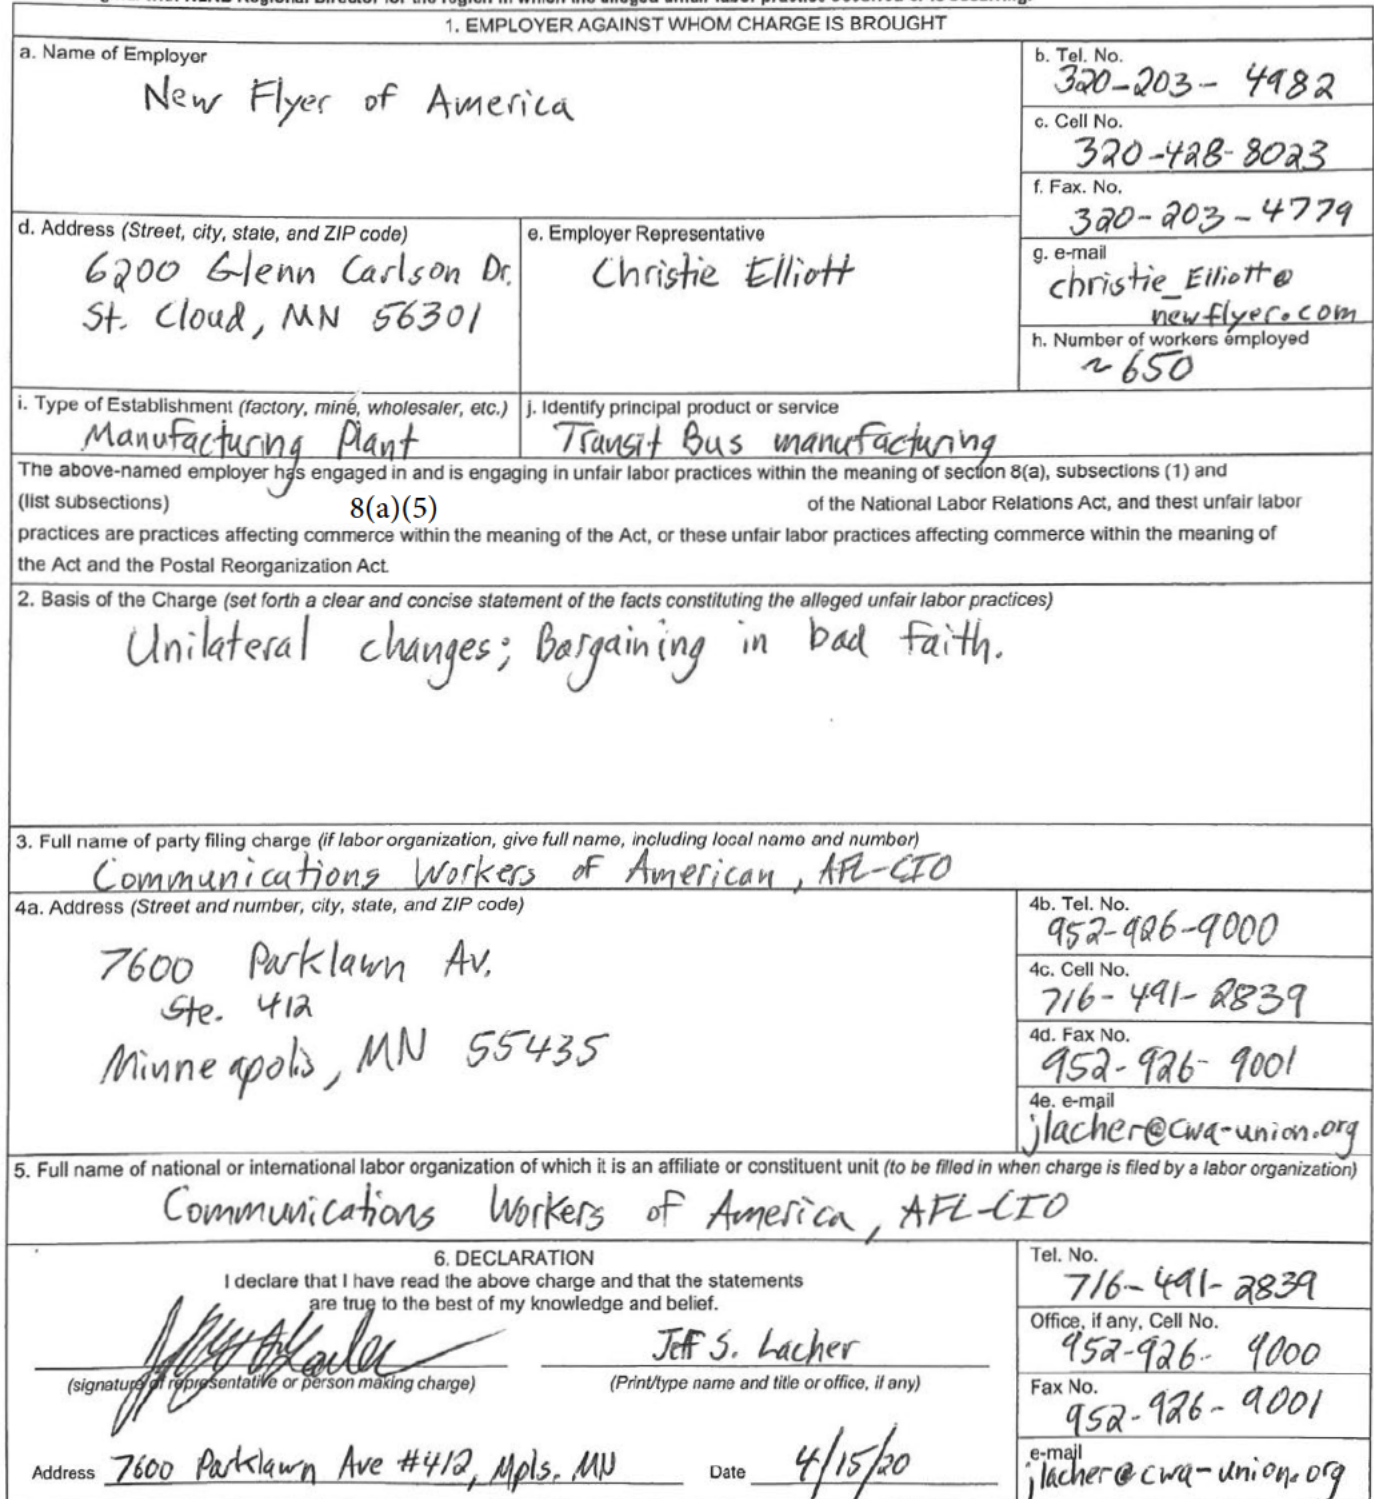 1. EMPLOYER AGAINST WHOM CHARGE IS BROUGHT
a. Name of Employer
New Flyer of America
b. Tel. No.
320-203- 4982
c. Cell No.
320-428-8023
f. Fax. No.
320-203-4779
d. Address (Street, city, state, and ZIP code)
6200 Glenn Carlson Dr.
St. Cloud, MN 56301
e. Employer Representative
Christie Elliott
g. e-mail
christie_Elliott@
newflyer.com
h. Number of workers employed
~650
i. Type of Establishment (factory, mine, wholesaler, etc.)
Manufacturing Plant
j. Identify principal product or service
Transit Bus manufacturing
The above-named employer has engaged in and is engaging in unfair labor practices within the meaning of section 8(a), subsections (1) and
(list subsections) 8(a)(5) of the National Labor Relations Act, and thest unfair labor
practices are practices affecting commerce within the meaning of the Act, or these unfair labor practices affecting commerce within the meaning of
the Act and the Postal Reorganization Act.
2. Basis of the Charge (set forth a clear and concise statement of the facts constituting the alleged unfair labor practices)
Unilateral changes; Bargaining in bad faith.
3. Full name of party filing charge (if labor organization, give full name, including local name and number)
Communications Workers of American, AFL-CIO
4a. Address (Street and number, city, state, and ZIP code)
7600 Parklawn Av.
Ste. 412
Minneapolis, MN 55435
4b. Tel. No.
952-926-9000
4c. Cell No.
716-491-2839
4d. Fax No.
952-926-9001
4e. e-mail
jlacher@cwa-union.org
5. Full name of national or international labor organization of which it is an affiliate or constituent unit (to be filled in when charge is filed by a labor organization)
Communications Workers of America, AFL-CIO
6. DECLARATION
I declare that I have read the above charge and that the statements
are true to the best of my knowledge and belief.
Jeff S. Lacher
(signature of representative or person making charge)
(Print/type name and title or office, if any)
Address 7600 Parklawn Ave #412, Mpls. MN
Date 4/15/20
Tel. No.
716-491-2839
Office, if any, Cell No.
952-926- 9000
Fax No.
952-926-9001
e-mail
jlacher@cwa-union.org